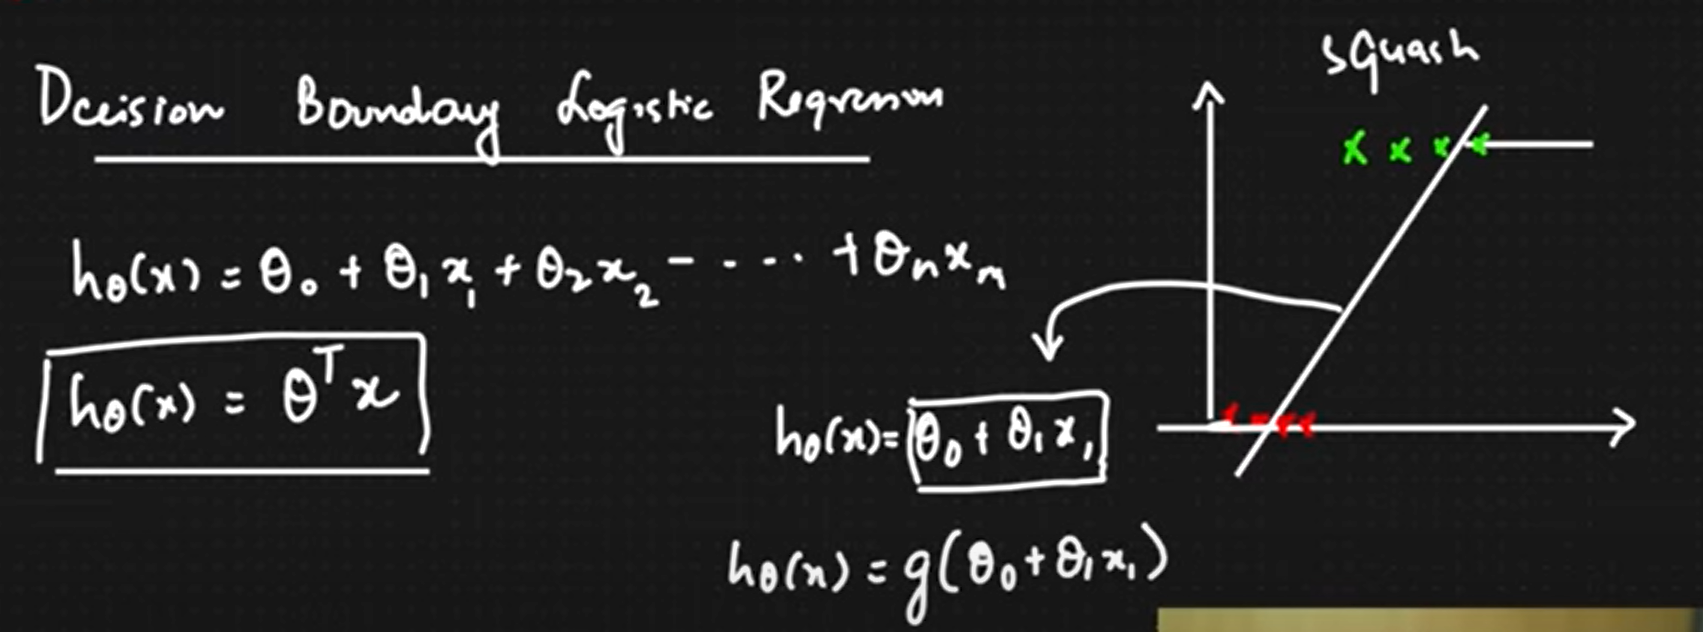 Decision Boundary Logistic Regression
squash
x x x x
hθ(x) = θ₀ + θ₁x₁ + θ₂x₂ - - - - ‥ + θₙxₙ
hθ(x) = θᵀx
hθ(x) = θ₀ + θ₁x₁
hθ(x) = g(θ₀ + θ₁x₁)